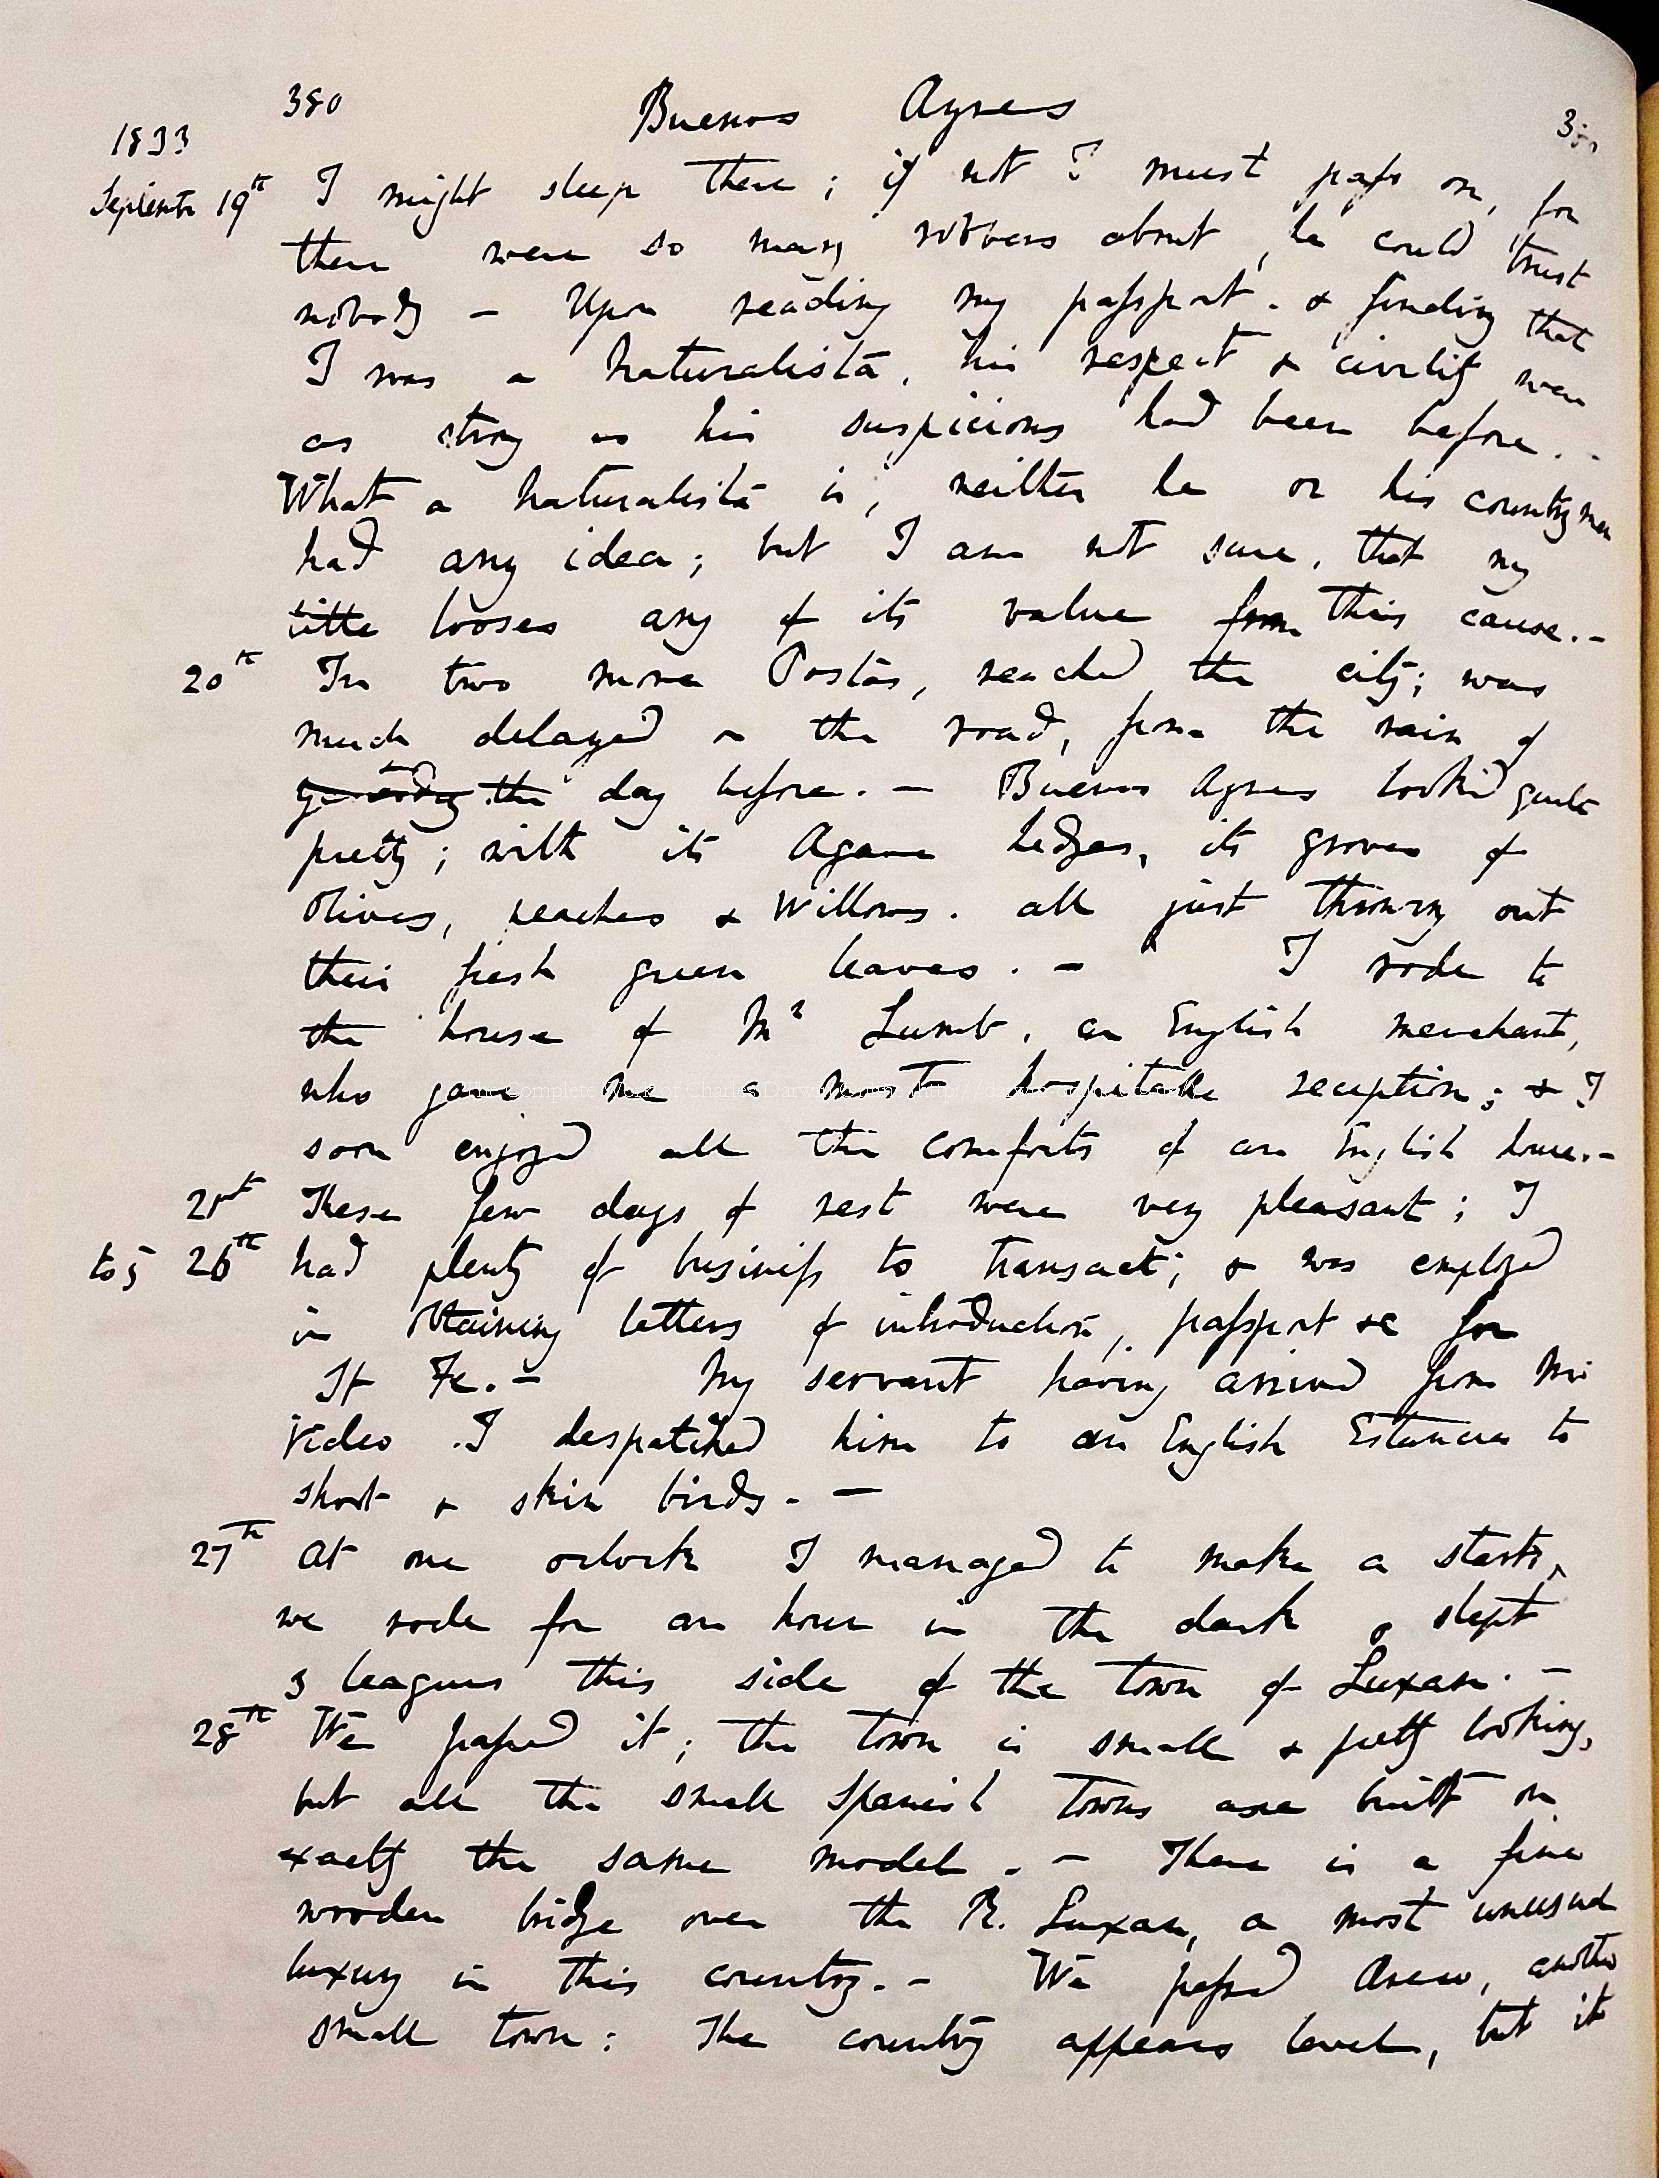 380 Buenos Ayres
1833
Septemb 19th I might sleep there; if not I must pass on, for
there were so many robbers about, he could trust
nobody — Upon reading my passport. & finding that
I was a Naturalista, his respect & civility were
as strong as his suspicions had been before. -
What a naturalista is, neither he or his countrymen
had any idea; but I am not sure, that my
title looses any of its value from this cause.-
20th In two more Postas, reached the city; was
much delayed on the road, from the rain of
the day before. — Buenos Ayres looked quite
pretty; with its Agave hedges, its groves of
Olives, peaches & Willows. all just throwing out
their fresh green leaves. — I rode to
the house of Mr Lumb, an English merchant,
who gave me a most hospitable reception; & I
soon enjoyed all the comforts of an English house.-
21st These few days of rest were very pleasant; I
to 26th had plenty of business to transact; & was employed
in obtaining letters of introduction, passport &c for
St Fe. — My servant having arrived from M:
Video. I despatched him to an English Estancia to
shoot & skin birds. —
27th At one oclock I managed to make a start,
we rode for an hour in the dark & slept
3 leagues this side of the town of Luxan. —
28th We passed it; the town is small & pretty looking,
but all the small Spanish towns are built on
exactly the same model. — There is a fine
wooden bridge over the R. Luxan, a most unusual
luxury in this country. — We passed Areco, another
small town: The country appears level, but it